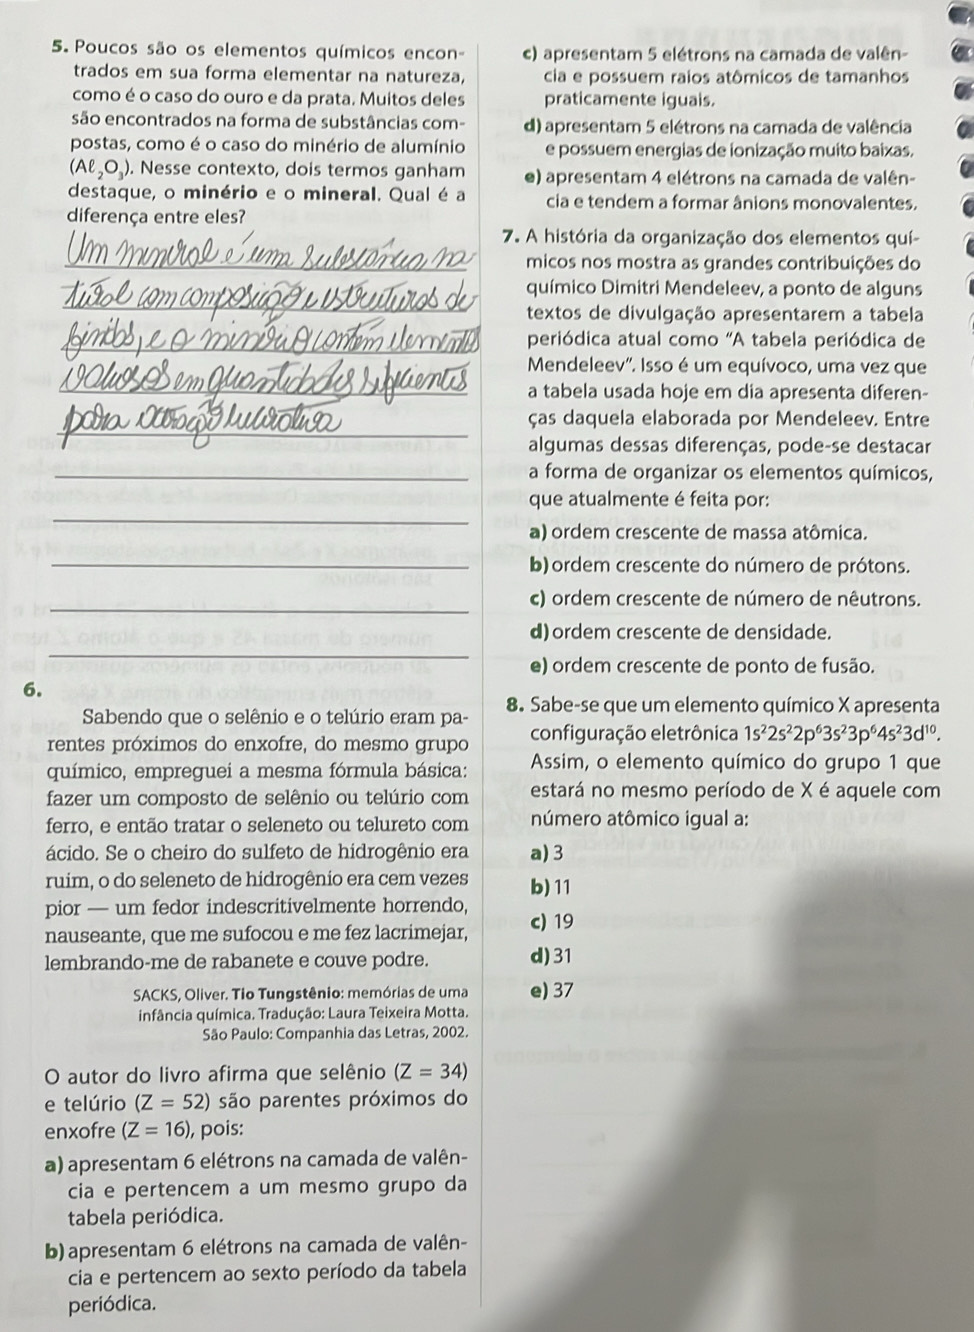 5. Poucos são os elementos químicos encon-
trados em sua forma elementar na natureza,
como é o caso do ouro e da prata. Muitos deles
são encontrados na forma de substâncias com-
postas, como é o caso do minério de alumínio
(Aℓ₂O₃). Nesse contexto, dois termos ganham
destaque, o minério e o mineral. Qual é a
diferença entre eles?
Um mineral é uma substância na
tural com composição e estruturas de
finidas, e o minério contém elementos
valiosos em quantidades suficientes
para extração lucrativa
6.
Sabendo que o selênio e o telúrio eram pa-
rentes próximos do enxofre, do mesmo grupo
químico, empreguei a mesma fórmula básica:
fazer um composto de selênio ou telúrio com
ferro, e então tratar o seleneto ou telureto com
ácido. Se o cheiro do sulfeto de hidrogênio era
ruim, o do seleneto de hidrogênio era cem vezes
pior — um fedor indescritivelmente horrendo,
nauseante, que me sufocou e me fez lacrimejar,
lembrando-me de rabanete e couve podre.
SACKS, Oliver. Tio Tungstênio: memórias de uma
infância química. Tradução: Laura Teixeira Motta.
São Paulo: Companhia das Letras, 2002.
O autor do livro afirma que selênio (Z = 34)
e telúrio (Z = 52) são parentes próximos do
enxofre (Z = 16), pois:
a) apresentam 6 elétrons na camada de valên-
cia e pertencem a um mesmo grupo da
tabela periódica.
b) apresentam 6 elétrons na camada de valên-
cia e pertencem ao sexto período da tabela
periódica.
c) apresentam 5 elétrons na camada de valên-
cia e possuem raios atômicos de tamanhos
praticamente iguais.
d) apresentam 5 elétrons na camada de valência
e possuem energias de ionização muito baixas.
e) apresentam 4 elétrons na camada de valên-
cia e tendem a formar ânions monovalentes.
7. A história da organização dos elementos quí-
micos nos mostra as grandes contribuições do
químico Dimitri Mendeleev, a ponto de alguns
textos de divulgação apresentarem a tabela
periódica atual como “A tabela periódica de
Mendeleev”. Isso é um equívoco, uma vez que
a tabela usada hoje em dia apresenta diferen-
ças daquela elaborada por Mendeleev. Entre
algumas dessas diferenças, pode-se destacar
a forma de organizar os elementos químicos,
que atualmente é feita por:
a) ordem crescente de massa atômica.
b) ordem crescente do número de prótons.
c) ordem crescente de número de nêutrons.
d) ordem crescente de densidade.
e) ordem crescente de ponto de fusão.
8. Sabe-se que um elemento químico X apresenta
configuração eletrônica 1s²2s²2p⁶3s²3p⁶4s²3d¹⁰.
Assim, o elemento químico do grupo 1 que
estará no mesmo período de X é aquele com
número atômico igual a:
a) 3
b) 11
c) 19
d) 31
e) 37